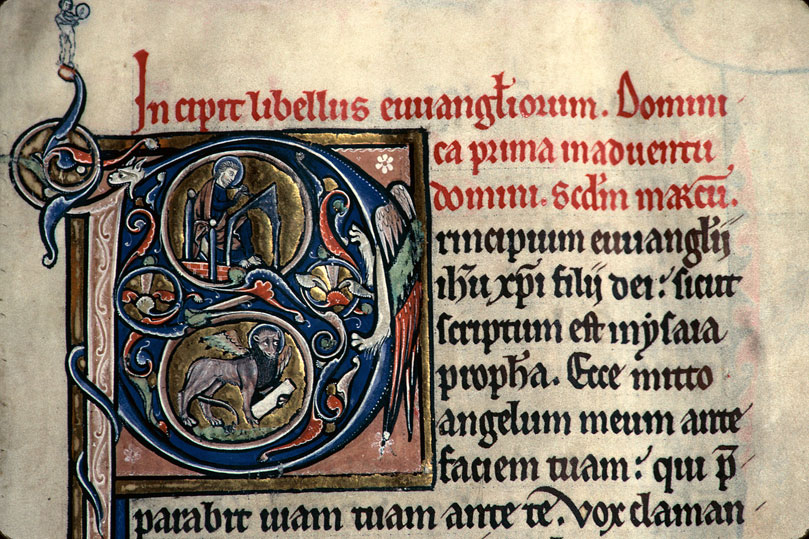 Incipit libellus euuangl̅iorum. Domini
ca prima inaduentu
domini. Scd̅m marcu̅.
Principium euuangl̅ij
ih̅u xp̅i filij dei: sicut
scriptum est inysaia
proph̅a. Ecce mitto
angelum meum ante
faciem tuam: qui p̅
parabit uiam tuam ante te. Vox claman